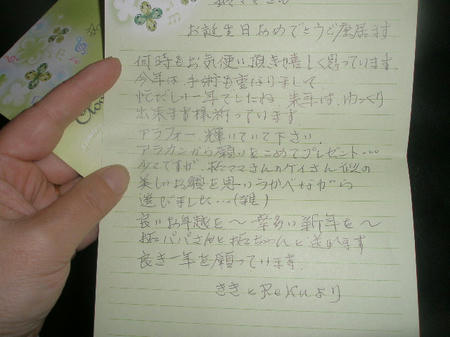 お誕生日おめでとうご座居ます
何時もお気使い頂き嬉しく思っています
今年は手術も重なりまして
忙だしい一年でしたね 来年は、ゆっくり
出来ます様祈っています
アラフォー 輝いていて下さい
アラカンから願いをこめてプレゼント…
少々ですが、
ママさんのケイさん似の
美しいお顔を思いうかべながら
選びました…(雑)
良いお年越を〜 幸多い新年を〜
パパさんと
ちゃんと
良き一年を願っています
ききとReikuより